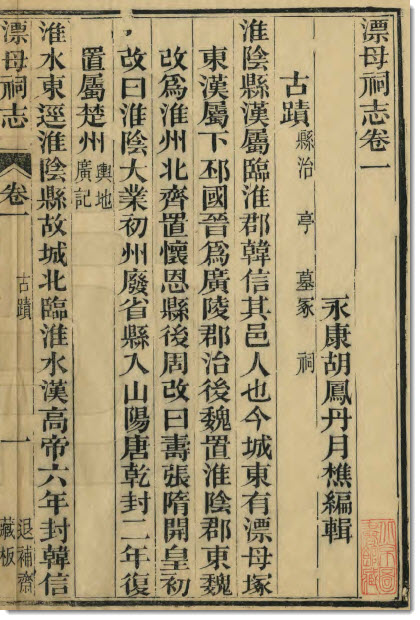 漂母祠志卷一
永康胡鳳丹月樵編輯
古蹟 縣治 亭 墓冢 祠
淮陰縣漢屬臨淮郡韓信其邑人也今城東有漂母冢
東漢屬下邳國晉爲廣陵郡治後魏置淮陰郡東魏
改爲淮州北齊置懷恩縣後周改曰壽張隋開皇初
改曰淮陰大業初州廢省縣入山陽唐乾封二年復
置屬楚州 輿地廣記
淮水東逕淮陰縣故城北臨淮水漢高帝六年封韓信
漂母祠志 卷一 古蹟 一 退補齋藏板